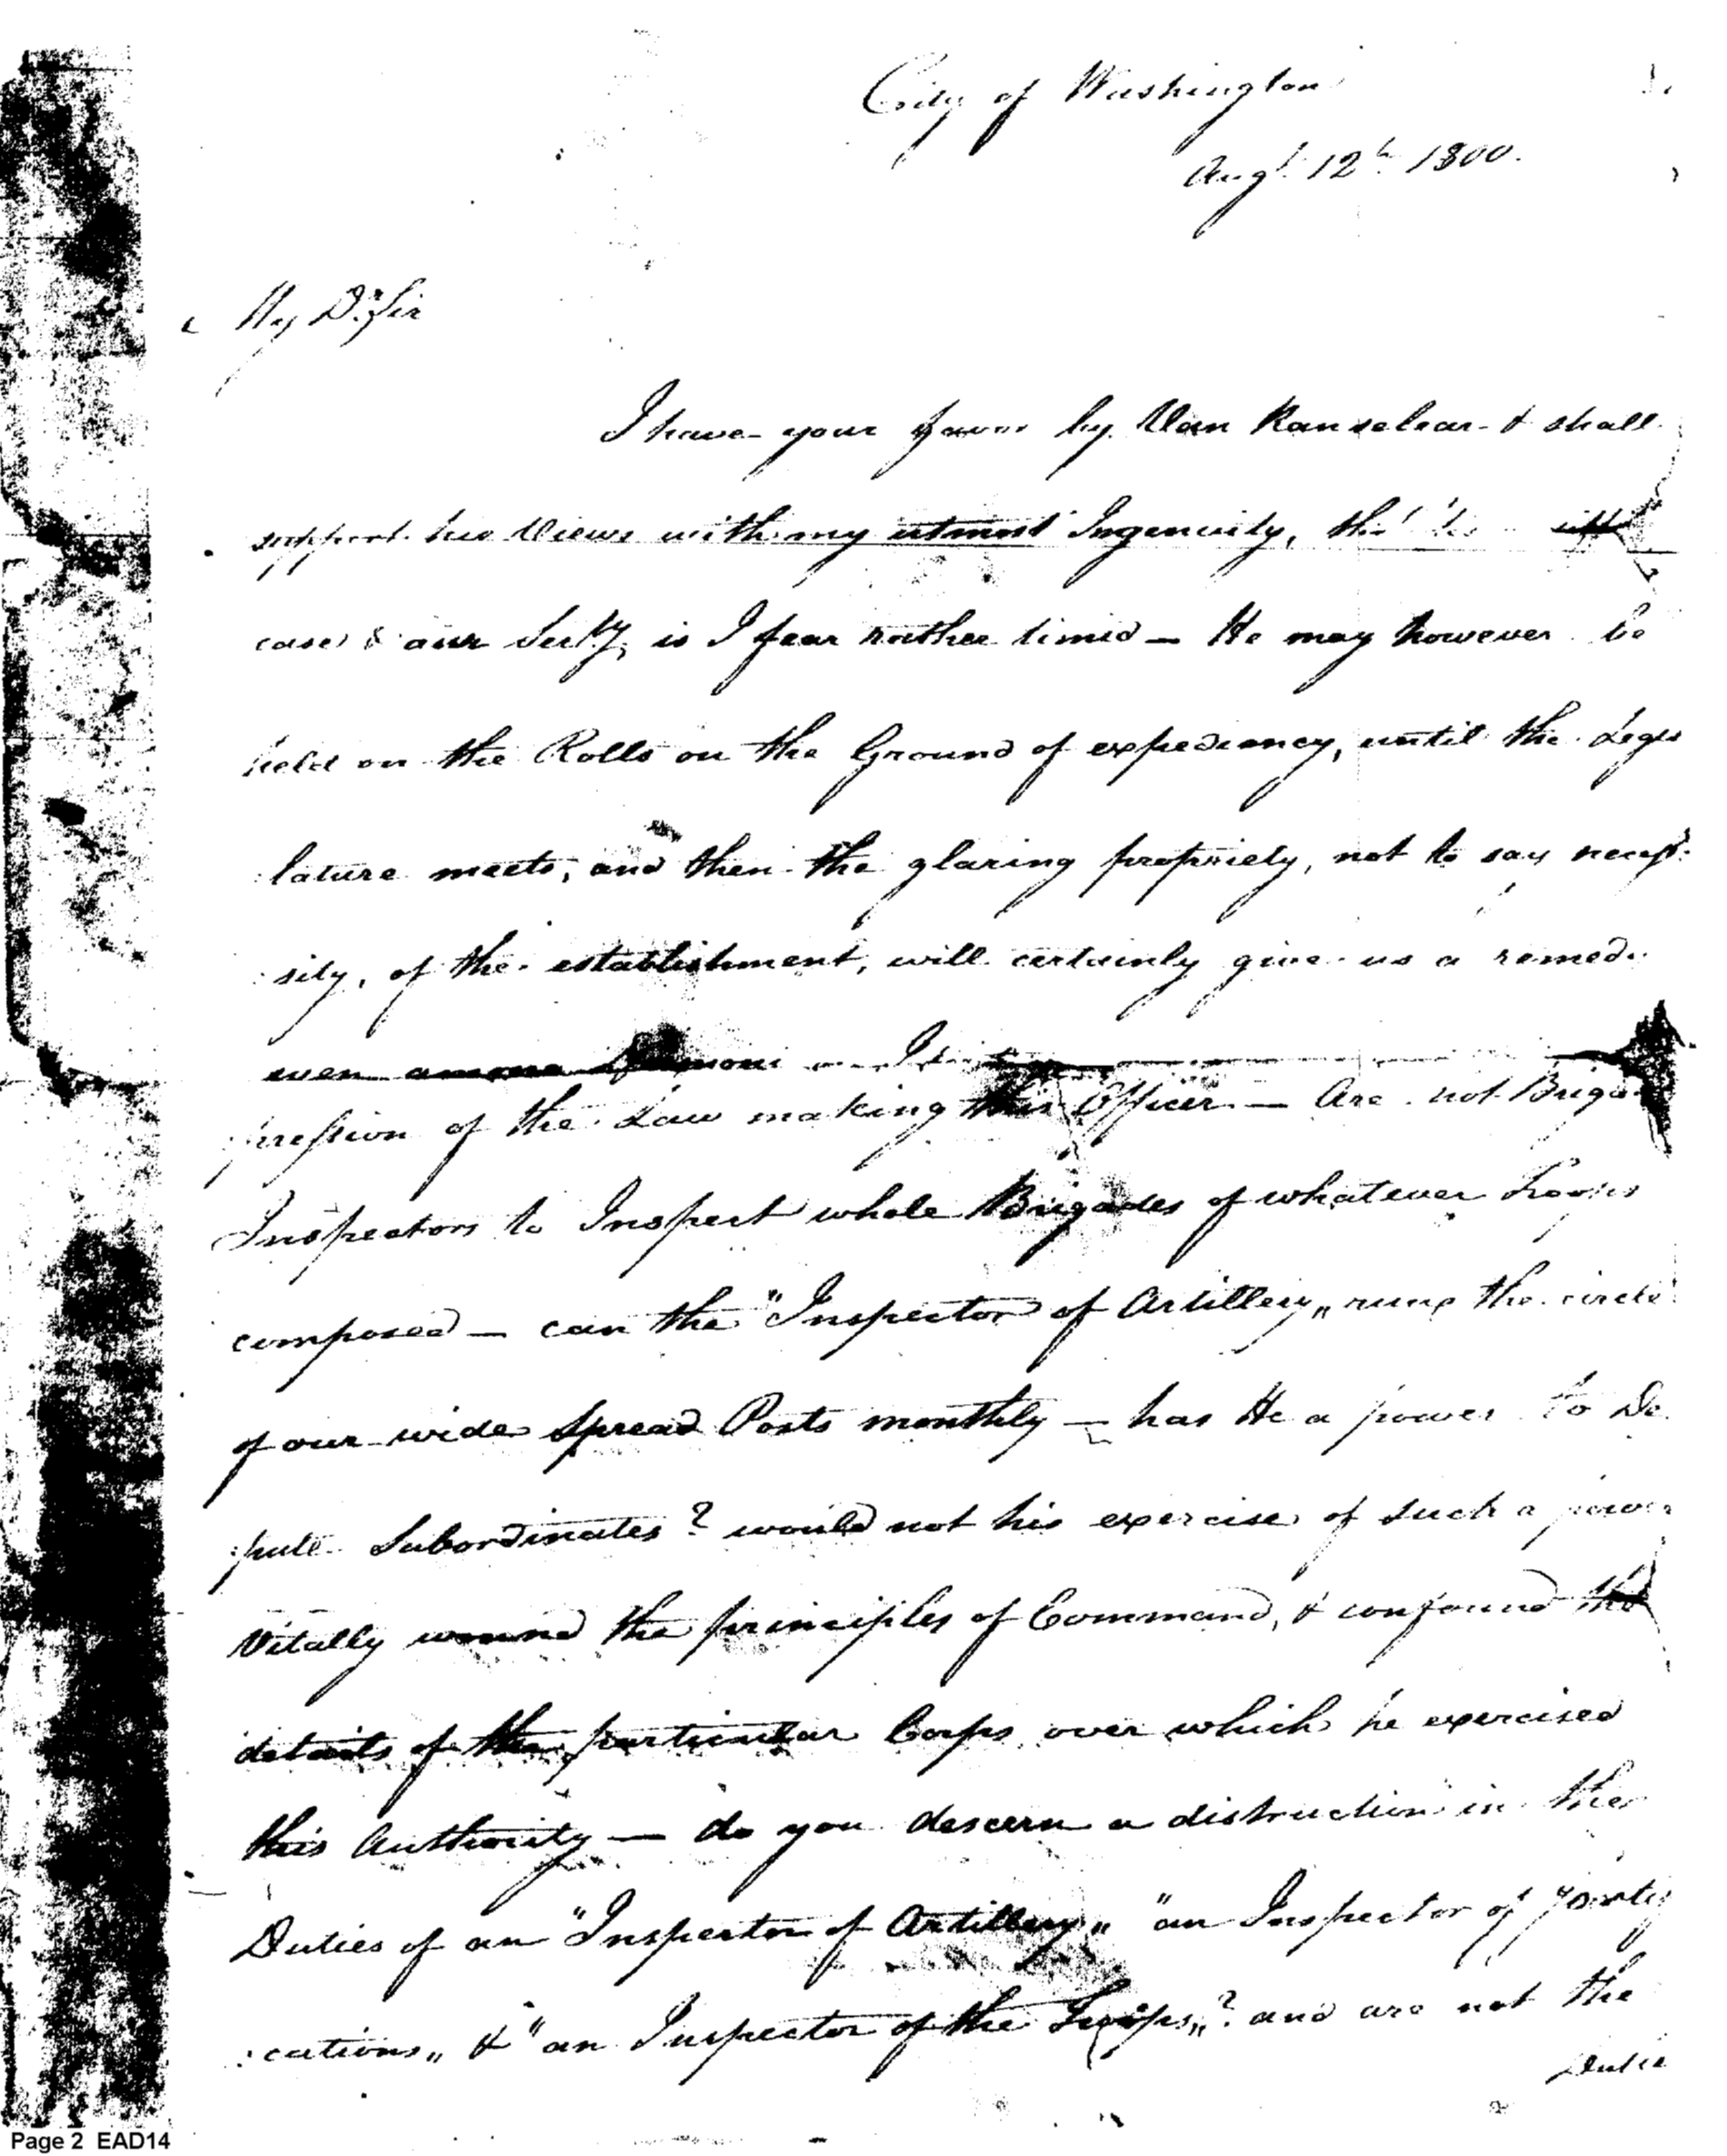 City of Washington
Augt. 12th 1800.
My Dr. Sir
I have your favor by Van Ranselear & shall
support his Views with my utmost Ingenuity, tho'
case & our Secty, is I fear rather timid — He may however be
held on the Rolls on the Ground of expediency, until the Legis
lature meets, and then the glaring propriety, not to say neces:
:sity, of the establishment, will certainly give us a remedy
even
pression of the Law making this Officer — Are not Brigade
Inspectors to Inspect whole Brigades of whatever Troops
composed — can the "Inspector of Artillery" runs the circle
of our wide Spread Posts monthly — has He a power to De
:pute Subordinates? would not his exercise of such a power
Vitally wound the principles of Command, & confound the
details of the particular Corps over which he exercised
this Authority — do you descern a distruction in the
Duties of an "Inspector of Artillery" "an Inspector of Fortifi
:cations" & "an Inspector of the Troops"? and are not the
Duties
Page 2 EAD14